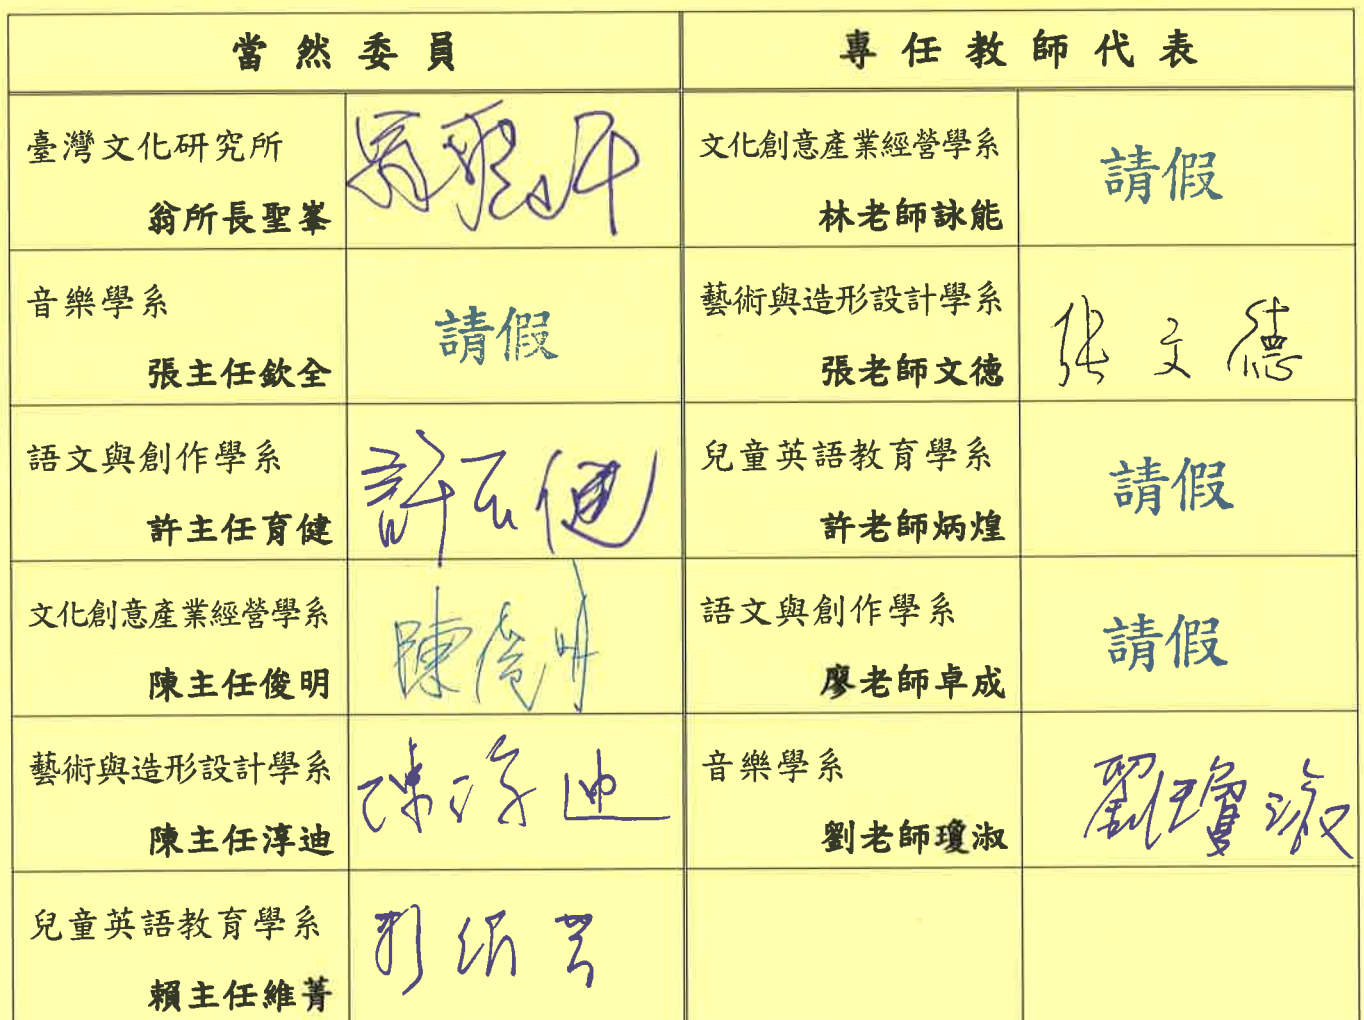 當然委員
專任教師代表
臺灣文化研究所
翁所長聖峯
翁聖峯
文化創意產業經營學系
林老師詠能
請假
音樂學系
張主任欽全
請假
藝術與造形設計學系
張老師文德
张文德
語文與創作學系
許主任育健
許育健
兒童英語教育學系
許老師炳煌
請假
文化創意產業經營學系
陳主任俊明
陳俊明
語文與創作學系
廖老師卓成
請假
藝術與造形設計學系
陳主任淳迪
陳淳迪
音樂學系
劉老師瓊淑
劉瓊淑
兒童英語教育學系
賴主任維菁